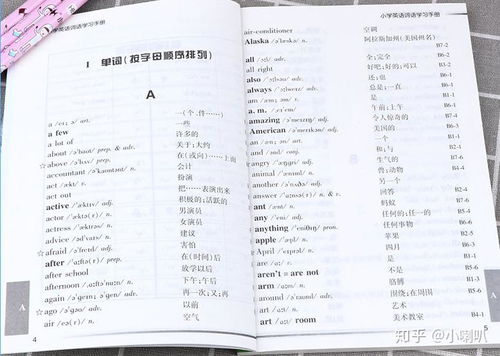 小学英语词语学习手册
1 单词（按字母顺序排列）
A
a /eɪ; ə/ art. 一(个、件……)
a few 一些
a lot of 许多的
about /ə'baʊt/ prep. & adv. 关于;大约
☆above /ə'bʌv/ prep. 在(或向)……上面
accountant /ə'kaʊntənt/ n. 会计
act /ækt/ v. 扮演
act out 把……表演出来
active /'æktɪv/ adj. 积极的;活跃的
actor /'æktə(r)/ n. 男演员
actress /'æktrəs/ n. 女演员
advice /əd'vaɪs/ n. 建议
☆afraid /ə'freɪd/ adj. 害怕
after /'ɑːftə(r)/ prep. 在(时间)后
after school 放学以后
afternoon /ˌɑːftə'nuːn/ n. 下午;午后
again /ə'ɡeɪn; ə'ɡen/ adv. 再一次;又;再
☆ago /ə'ɡəʊ/ adv. 以前
air /eə(r)/ n. 空气
A
4
小学英语词语学习手册
air-conditioner 空调
Alaska /ə'læskə/ n. 阿拉斯加州(美国州名) B7-2
all /ɔːl/ adv. 全;完全 B6-2
all right 好吧;好的;可以 B3-2
also /'ɔːlsəʊ/ adv. 还;也 B6-1
always /'ɔːlweɪz/ adv. 总是;一直
am /æm; əm/ v. 是
a. m. /ˌeɪ'em/ 午前;上午
amazing /ə'meɪzɪŋ/ adj. 令人惊奇的
American /ə'merɪkən/ adj. 美国的
an /æn; ən/ art. 一个
and /ænd/ conj. 和;与
angry /'æŋɡri/ adj. 生气的
animal /'ænɪml/ n. 兽;动物
another /ə'nʌðə/ 另一个
answer /'ɑːnsə(r)/ n. & v. 回答
ant /ænt/ n. 蚂蚁
any /'eni/ adj. 任何的;任一的
anything /'eniθɪŋ/ pron. 任何事物
apple /'æpl/ n. 苹果
April /'eɪprəl/ n. 四月
are /ɑː/ v. 是
aren't = are not 不是
arm /ɑːm/ n. 胳膊
around /ə'raʊnd/ 围绕;在周围
art /ɑːt/ n. 艺术
art /ɑːt/ room 美术教室
A
5
知乎 @小喇叭